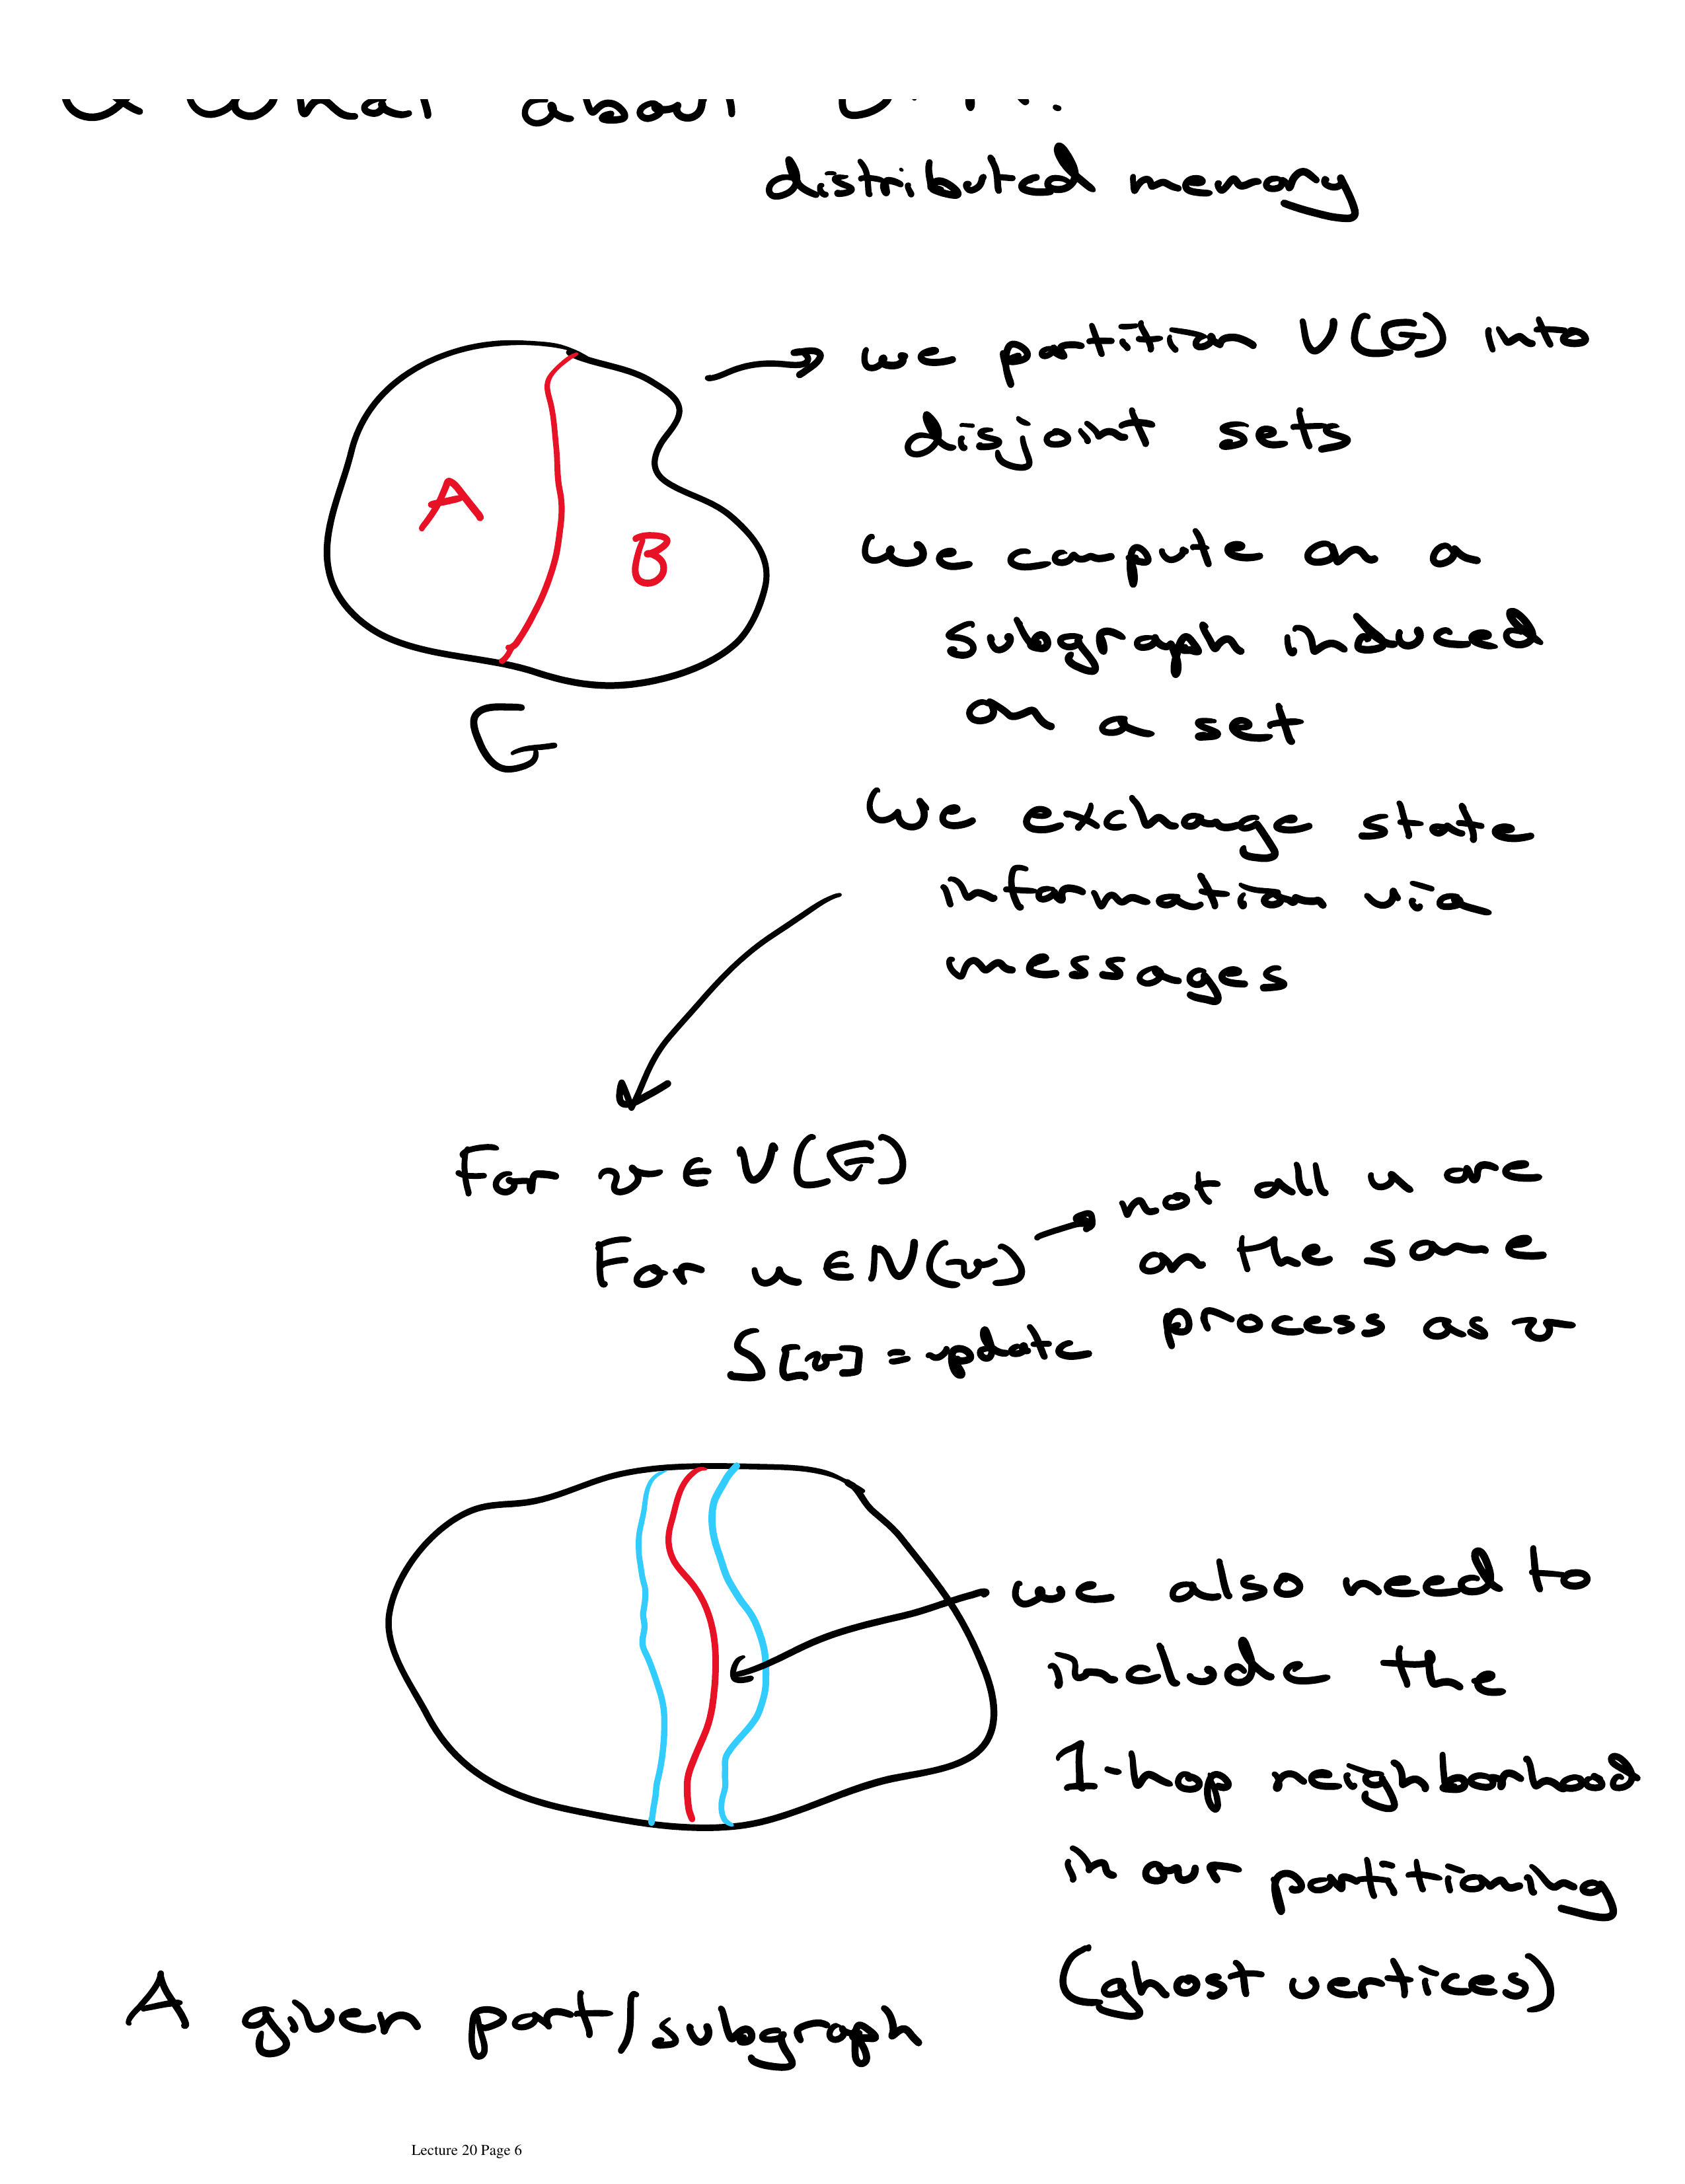 what about
distributed memory
we partition V(G) into
disjoint sets
A
B
G
we compute on a
subgraph induced
on a set
We exchange state
information via
messages
For v ∈ V(G)
For u ∈ N(v) → not all u are
on the same
process as v
S[v] = update
we also need to
include the
1-hop neighborhood
in our partitioning
(ghost vertices)
A given part/subgraph
Lecture 20 Page 6